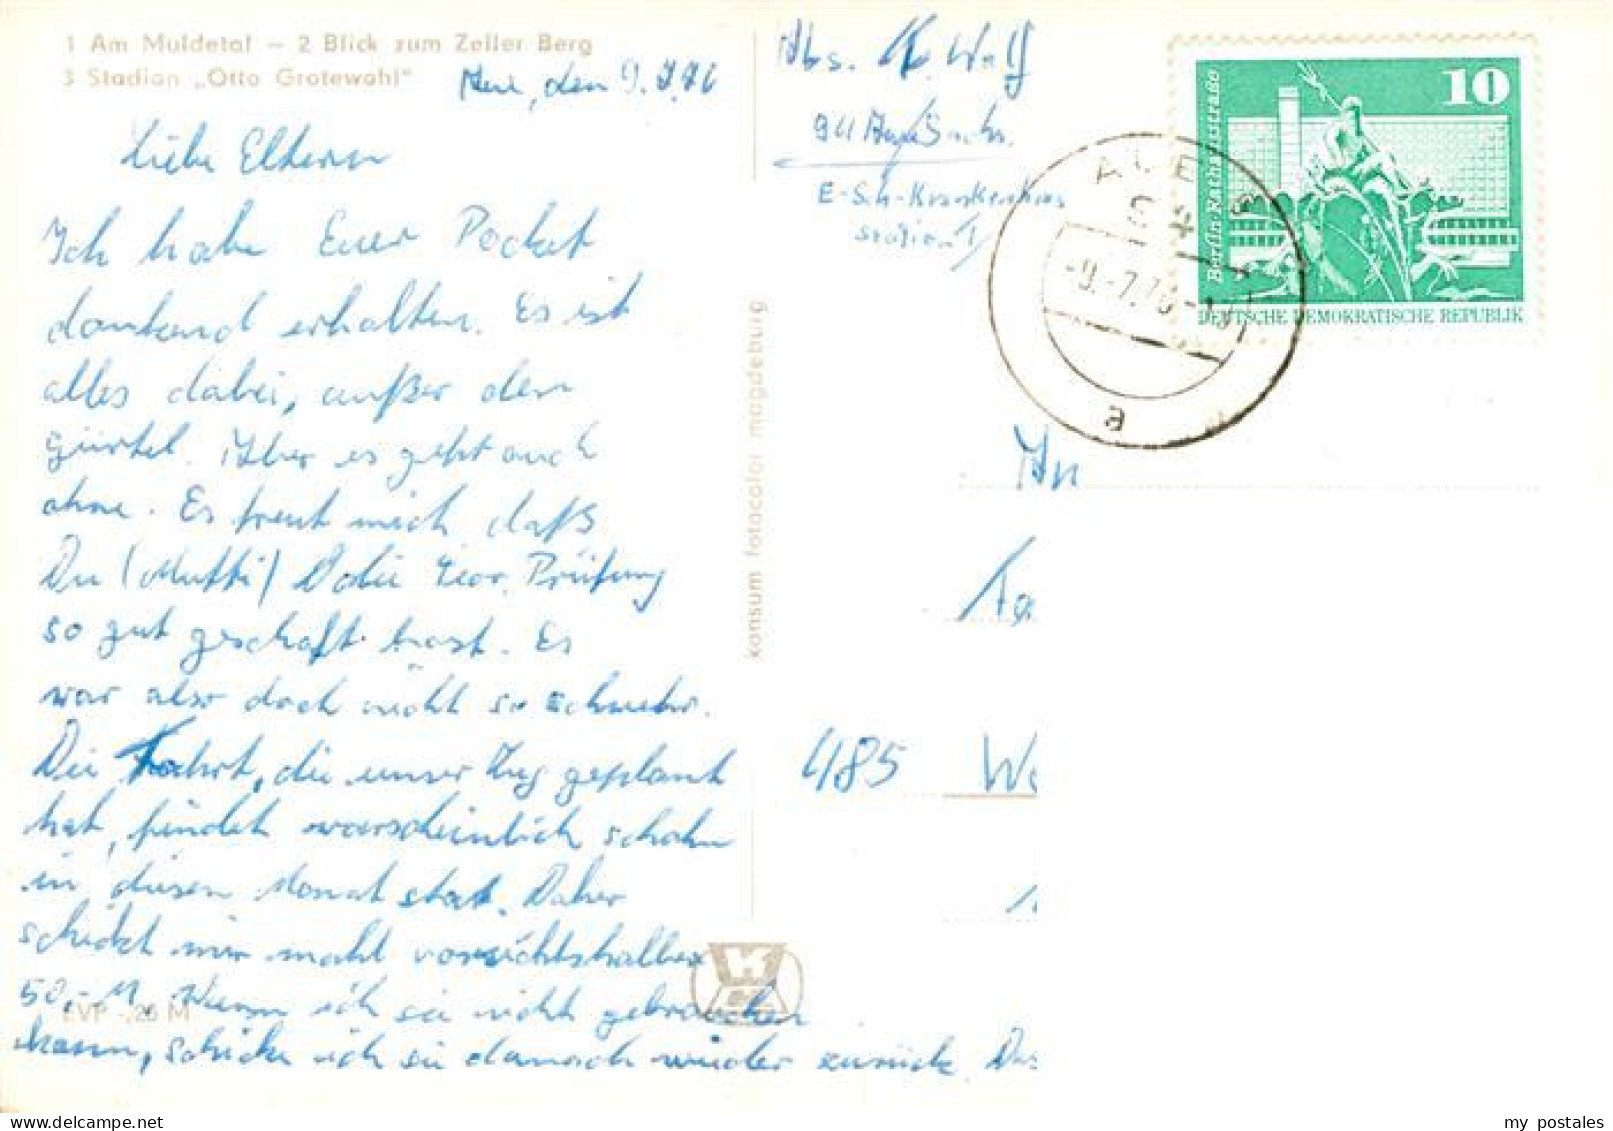 1 Am Muldetal – 2 Blick zum Zeller Berg
3 Stadion „Otto Grotewohl"
Aue, den 9.7.76
Liebe Eltern
Ich habe Euer Packet
dankend erhalten. Es ist
alles dabei, außer den
Gürtel. Aber es geht auch
ohne. Es freut mich daß
Du (Mutti) Prüfung
so gut geschafft hast. Es
war also doch nicht so schwehr.
Die Fahrt, die unser Zug geplant
hat, findet warscheinlich schohn
in diesen Monat stat. Daher
schickt mir mahl vorsichtshalber
50,- M. Wenn ich sie nicht gebrauchen
kann, schicke ich sie danach wieder zurück. Das
EVP -,20 M
konsum fotocolor magdeburg
Abs. K. Wolf
94 Aue/Sachs.
E-Sch-Krankenhaus
Station 1
AUE
-9.-7.76-
a
10
Berlin-Rathausstraße
DEUTSCHE DEMOKRATISCHE REPUBLIK
An
485 We
my postales